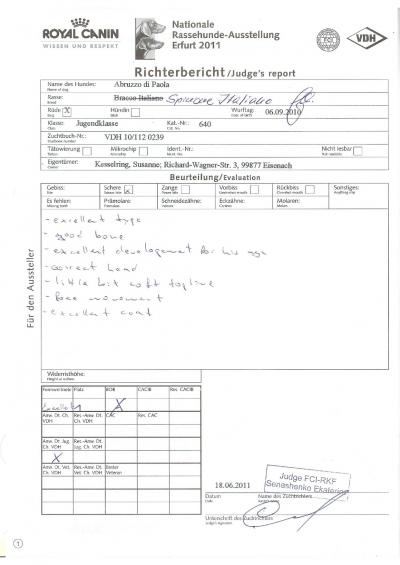 ROYAL CANIN
WISSEN UND RESPEKT
Nationale
Rassehunde-Ausstellung
Erfurt 2011
FCI
VDH
Richterbericht/Judge's report
Name des Hundes: Abruzzo di Paola
Name of dog
Rasse: Bracco Italiano Spinone Italiano
Breed
Rüde X Hündin Wurftag: 06.09.2010
Date of birth
Klasse: Jugendklasse Kat.-Nr.: 640
Class Cat. No.
Zuchtbuch-Nr.: VDH 10/112 0239
Tätowierung Mikrochip Ident.-Nr.: Nicht lesbar
Eigentümer: Kesselring, Susanne; Richard-Wagner-Str. 3, 99877 Eisenach
Owner
Beurteilung/Evaluation
Gebiss: Schere x Zange Vorbiss Rückbiss Sonstiges:
Es fehlen: Prämolare: Schneidezähne: Eckzähne: Molaren:
Für den Aussteller
- excellent type
- good bone
- excellent development for his age
- correct head
- little bit soft topline
- free movement
- excellent coat
Widerristhöhe:
Height at withers
Formwertnote Platz BOB CACIB Res. CACIB
Excellent 1 X
Anw. Dt. Ch. VDH Res.-Anw. Dt. Ch. VDH CAC Res. CAC
Anw. Dt. Jug. Ch. VDH Res.-Anw. Dt. Jug. Ch. VDH
X
Anw. Dt. Vet. Ch. VDH Res.-Anw. Dt. Vet. Ch. VDH Bester Veteran
Judge FCI-RKF
Senashenko Ekaterina
18.06.2011
Datum Name des Zuchtrichters
Unterschrift des Zuchtrichters
Judge's signature
1